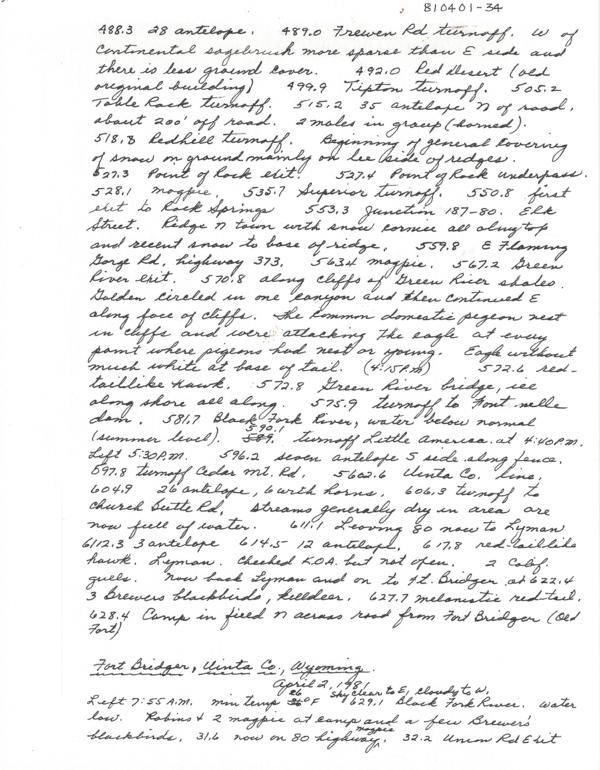 810401-34
488.3 28 antelope. 489.0 Frewen Rd turnoff. W of
Continental sagebrush more sparse than E side and
there is less ground cover. 492.0 Red Desert (old
original building) 499.9 Tipton turnoff. 505.2
Table Rock turnoff. 515.2 35 antelope N of road,
about 200' off road. 2 males in group (horned).
518.8 Redhill turnoff. Beginning of general covering
of snow on ground mainly on lee side of ridges.
527.3 Point of Rock exit. 527.4 Point of Rock underpass.
528.1 magpie. 535.7 Superior turnoff. 550.8 first
exit to Rock Springs 553.3 Junction 187-80. Elk
Street. Ridge N town with snow cornice all along top
and recent snow to base of ridge. 559.8 E Flaming
Gorge Rd, highway 373. 563.4 magpie. 567.2 Green
River exit. 570.8 along cliffs of Green River shales.
Golden circled in one canyon and then continued E
along face of cliffs. The common domestic pigeon nest
in cliffs and were attacking the eagle at every
point where pigeons had nest or young. Eagle without
much white at base of tail. (4:15 P.M) 572.6 red-
taillike hawk. 572.8 Green River bridge, ice
along shore all along. 575.9 turnoff to Font nelle
dam. 581.7 Black Fork River, water below normal
(summer level). 590.1 turnoff Little America at 4:40 P.M.
Left 5:30 P.M. 596.2 seven antelope S side along fence.
597.8 turnoff Cedar Mt. Rd. 5602.6 Uinta Co. line.
604.9 26 antelope, 6 with horns. 606.3 turnoff to
Church Butte Rd. Streams generally dry in area are
now full of water. 611.1 Leaving 80 now to Lyman
6112.3 3 antelope 614.5 12 antelope. 617.8 red-taillike
hawk. Lyman. Checked K.O.A. but not open. 2 Calif.
gulls. Now back Lyman and on to Ft. Bridger, at 622.4
3 Brewers blackbirds, killdeer. 627.7 melanistic red-tail.
628.4 Camp in field N across road from Fort Bridger (Old
Fort)
Fort Bridger, Uinta Co., Wyoming.
April 2, 1981
Left 7:55 A.M. min temp 26 °F Sky clear to E, cloudy to W. 629.1 Black Fork River. Water
low. Robins & 2 magpie at camp and a few Brewer's
blackbirds. 31.6 now on 80 highway. magpie 32.2 Union Rd Exit